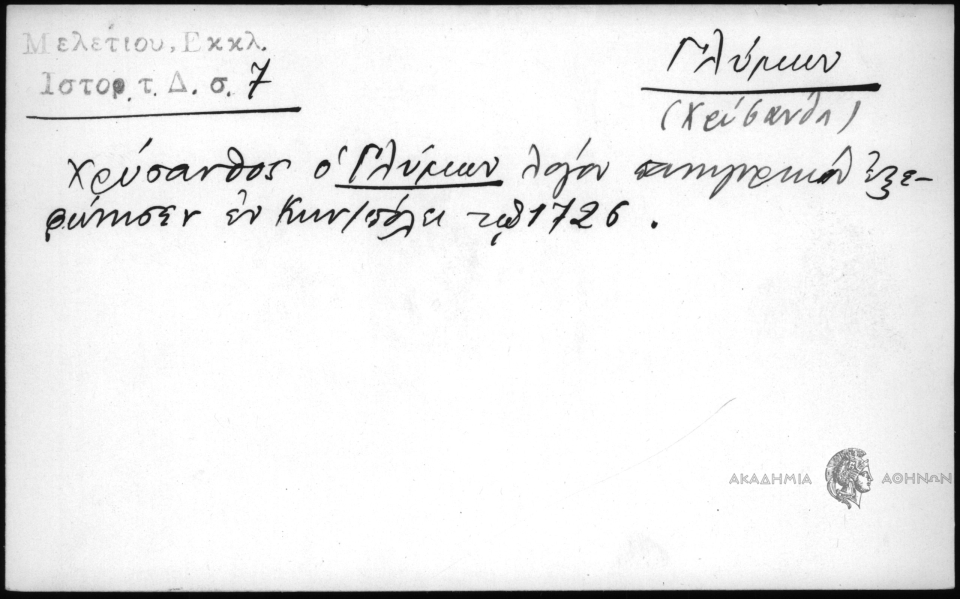 Μελετίου, Εκκλ.
Ιστορ. τ. Δ. σ. 7
Γλύκων
(Χρύσανθ)
Χρύσανθος ὁ Γλύκων λόγον πανηγυρικόν ἐξε-
φώνησεν ἐν Κων/πόλει τῷ 1726.
ΑΚΑΔΗΜΙΑ ΑΘΗΝΩΝ